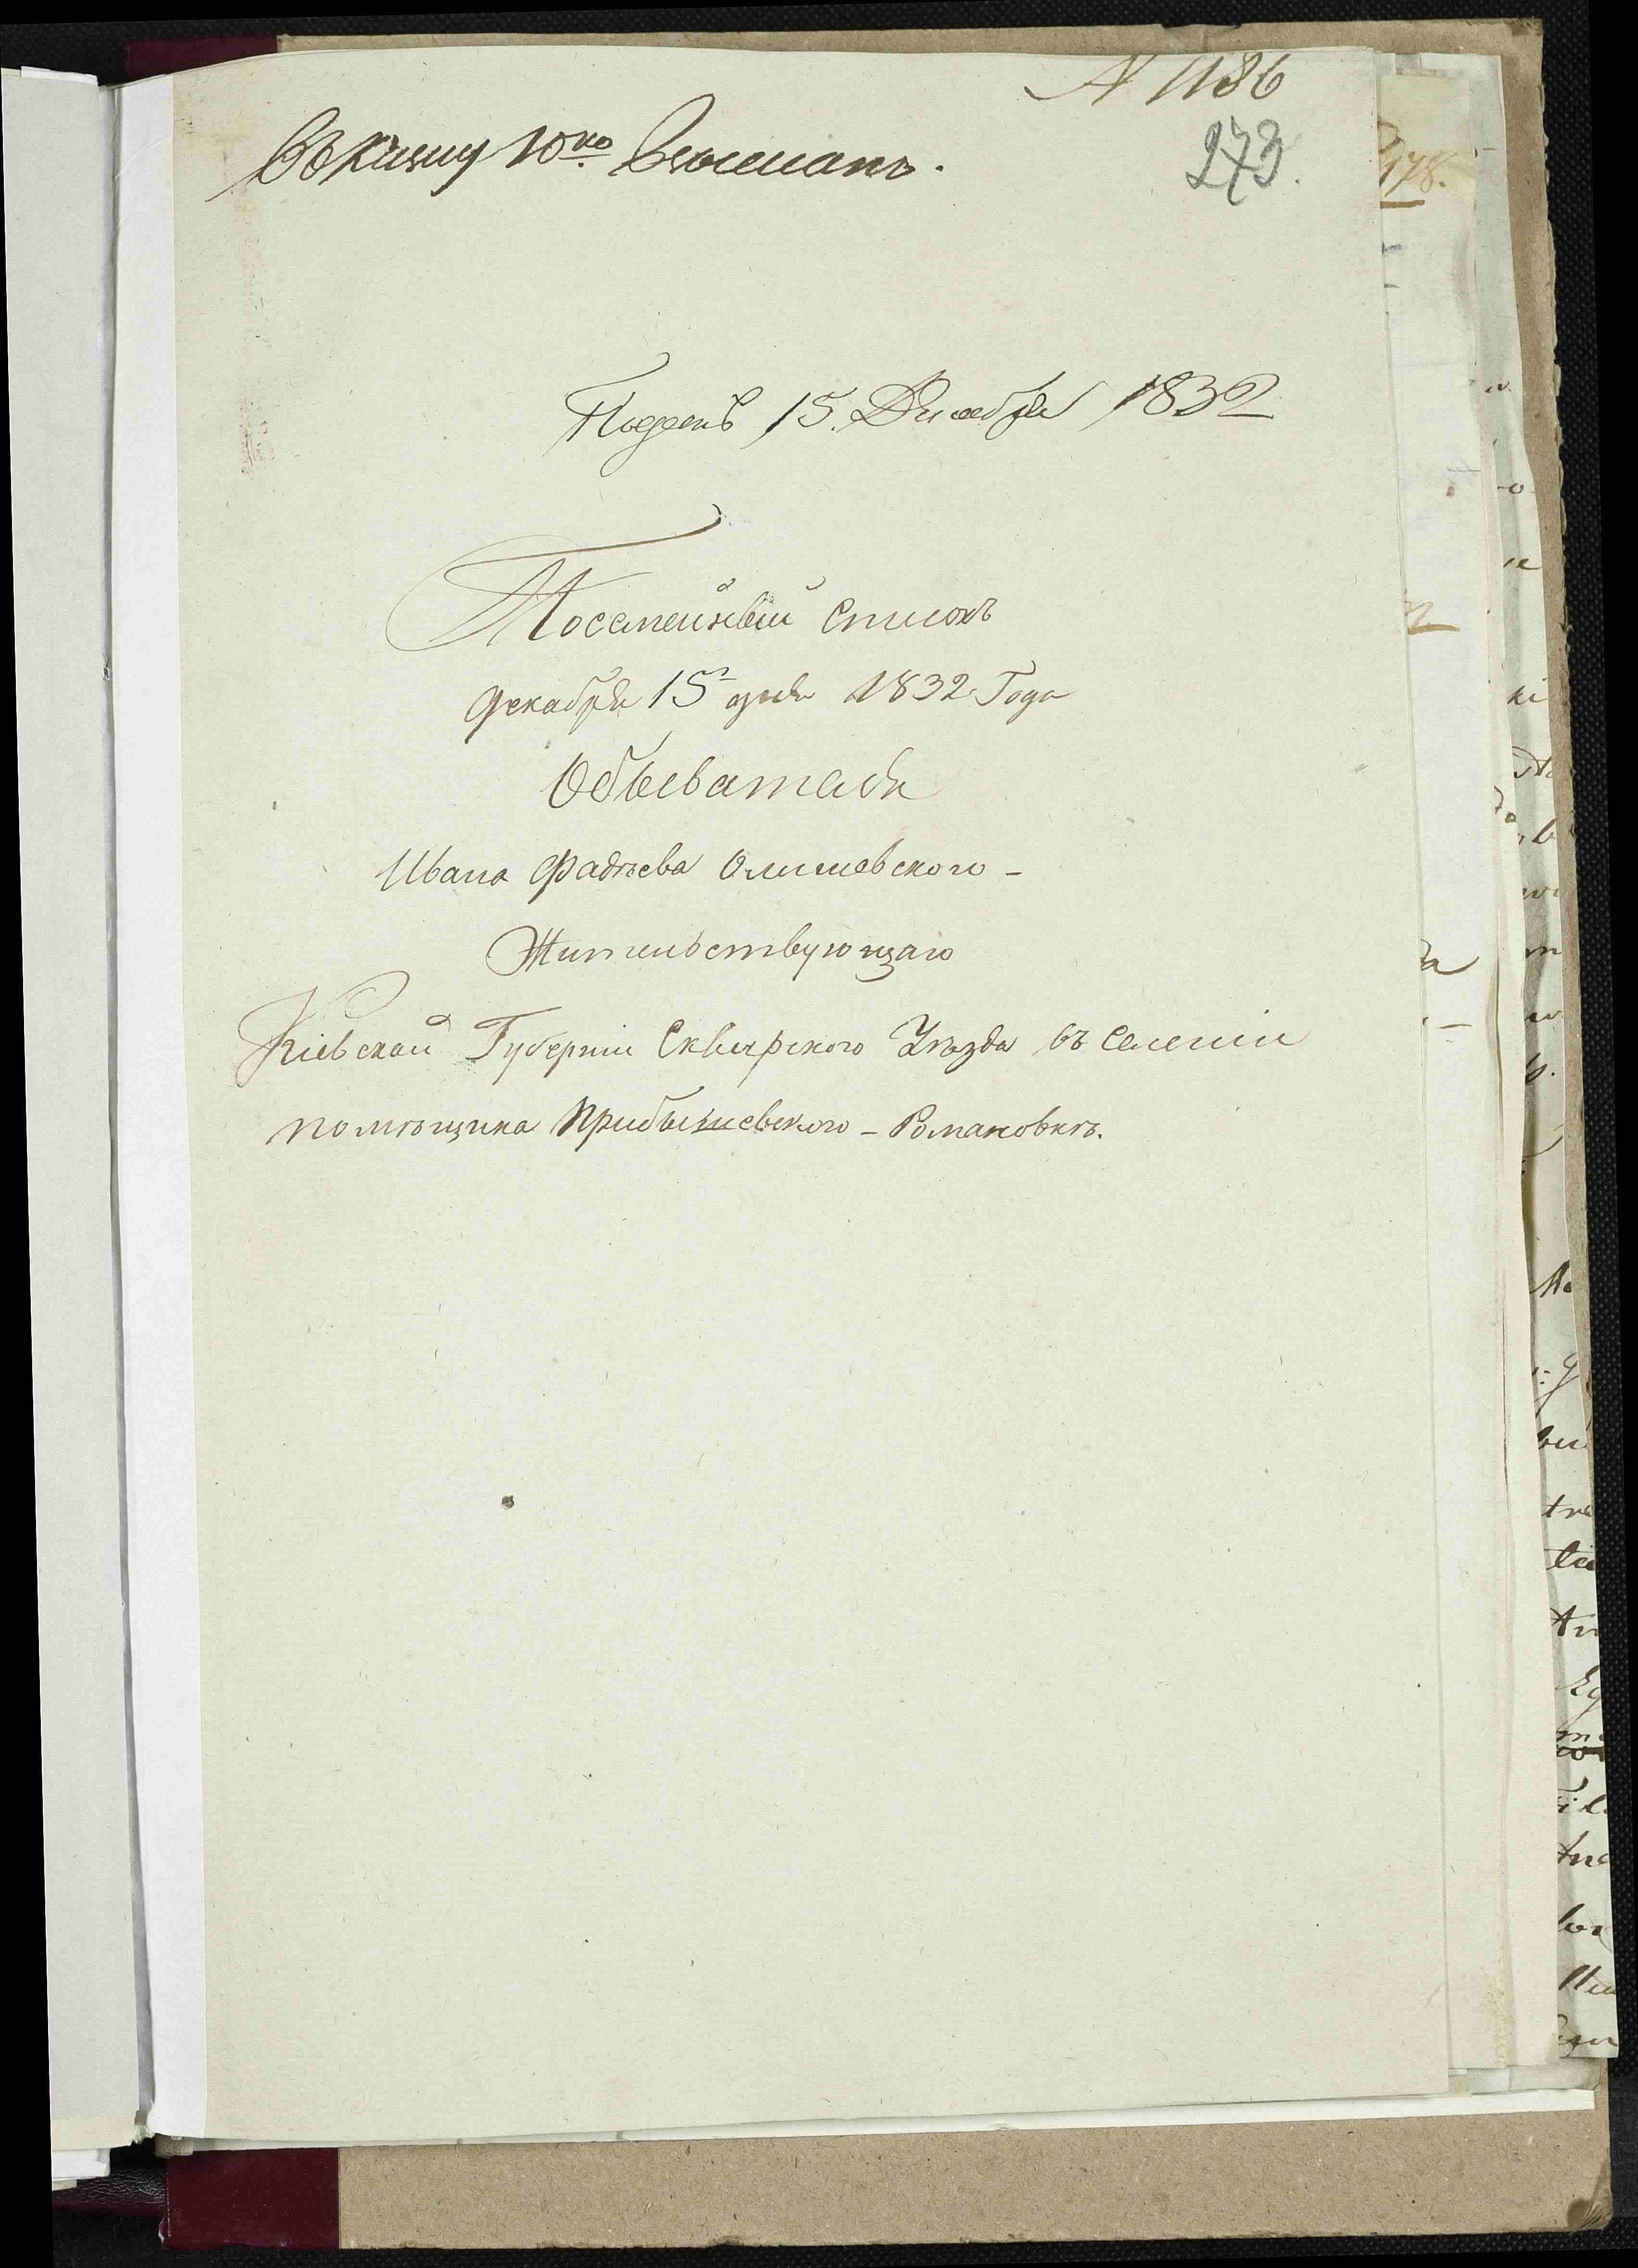 N 1186
Въ книгу 10ю
273.
Поданъ 15. Декабря 1832
Посемейный списокъ
Декабря 15 дня 1832 Года
Обывателя
Ивана Фадѣева Олишевского -
Жительствующаго
Кіевской Губерніи Сквирского Уѣзда въ селеніи
помѣщика Прибышевского - Романовкѣ.
178.